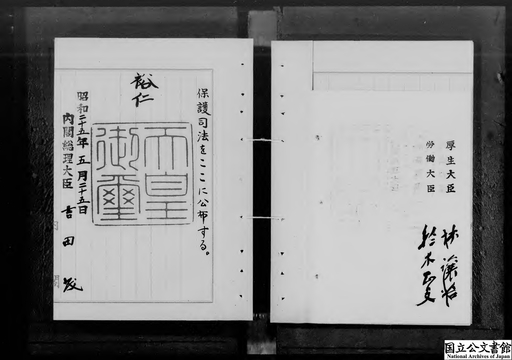 保護司法をここに公布する。
裕仁
天皇御璽
昭和二十五年五月二十五日
内閣総理大臣 吉田茂
厚生大臣 林譲治
労働大臣 鈴木正文
国立公文書館
National Archives of Japan